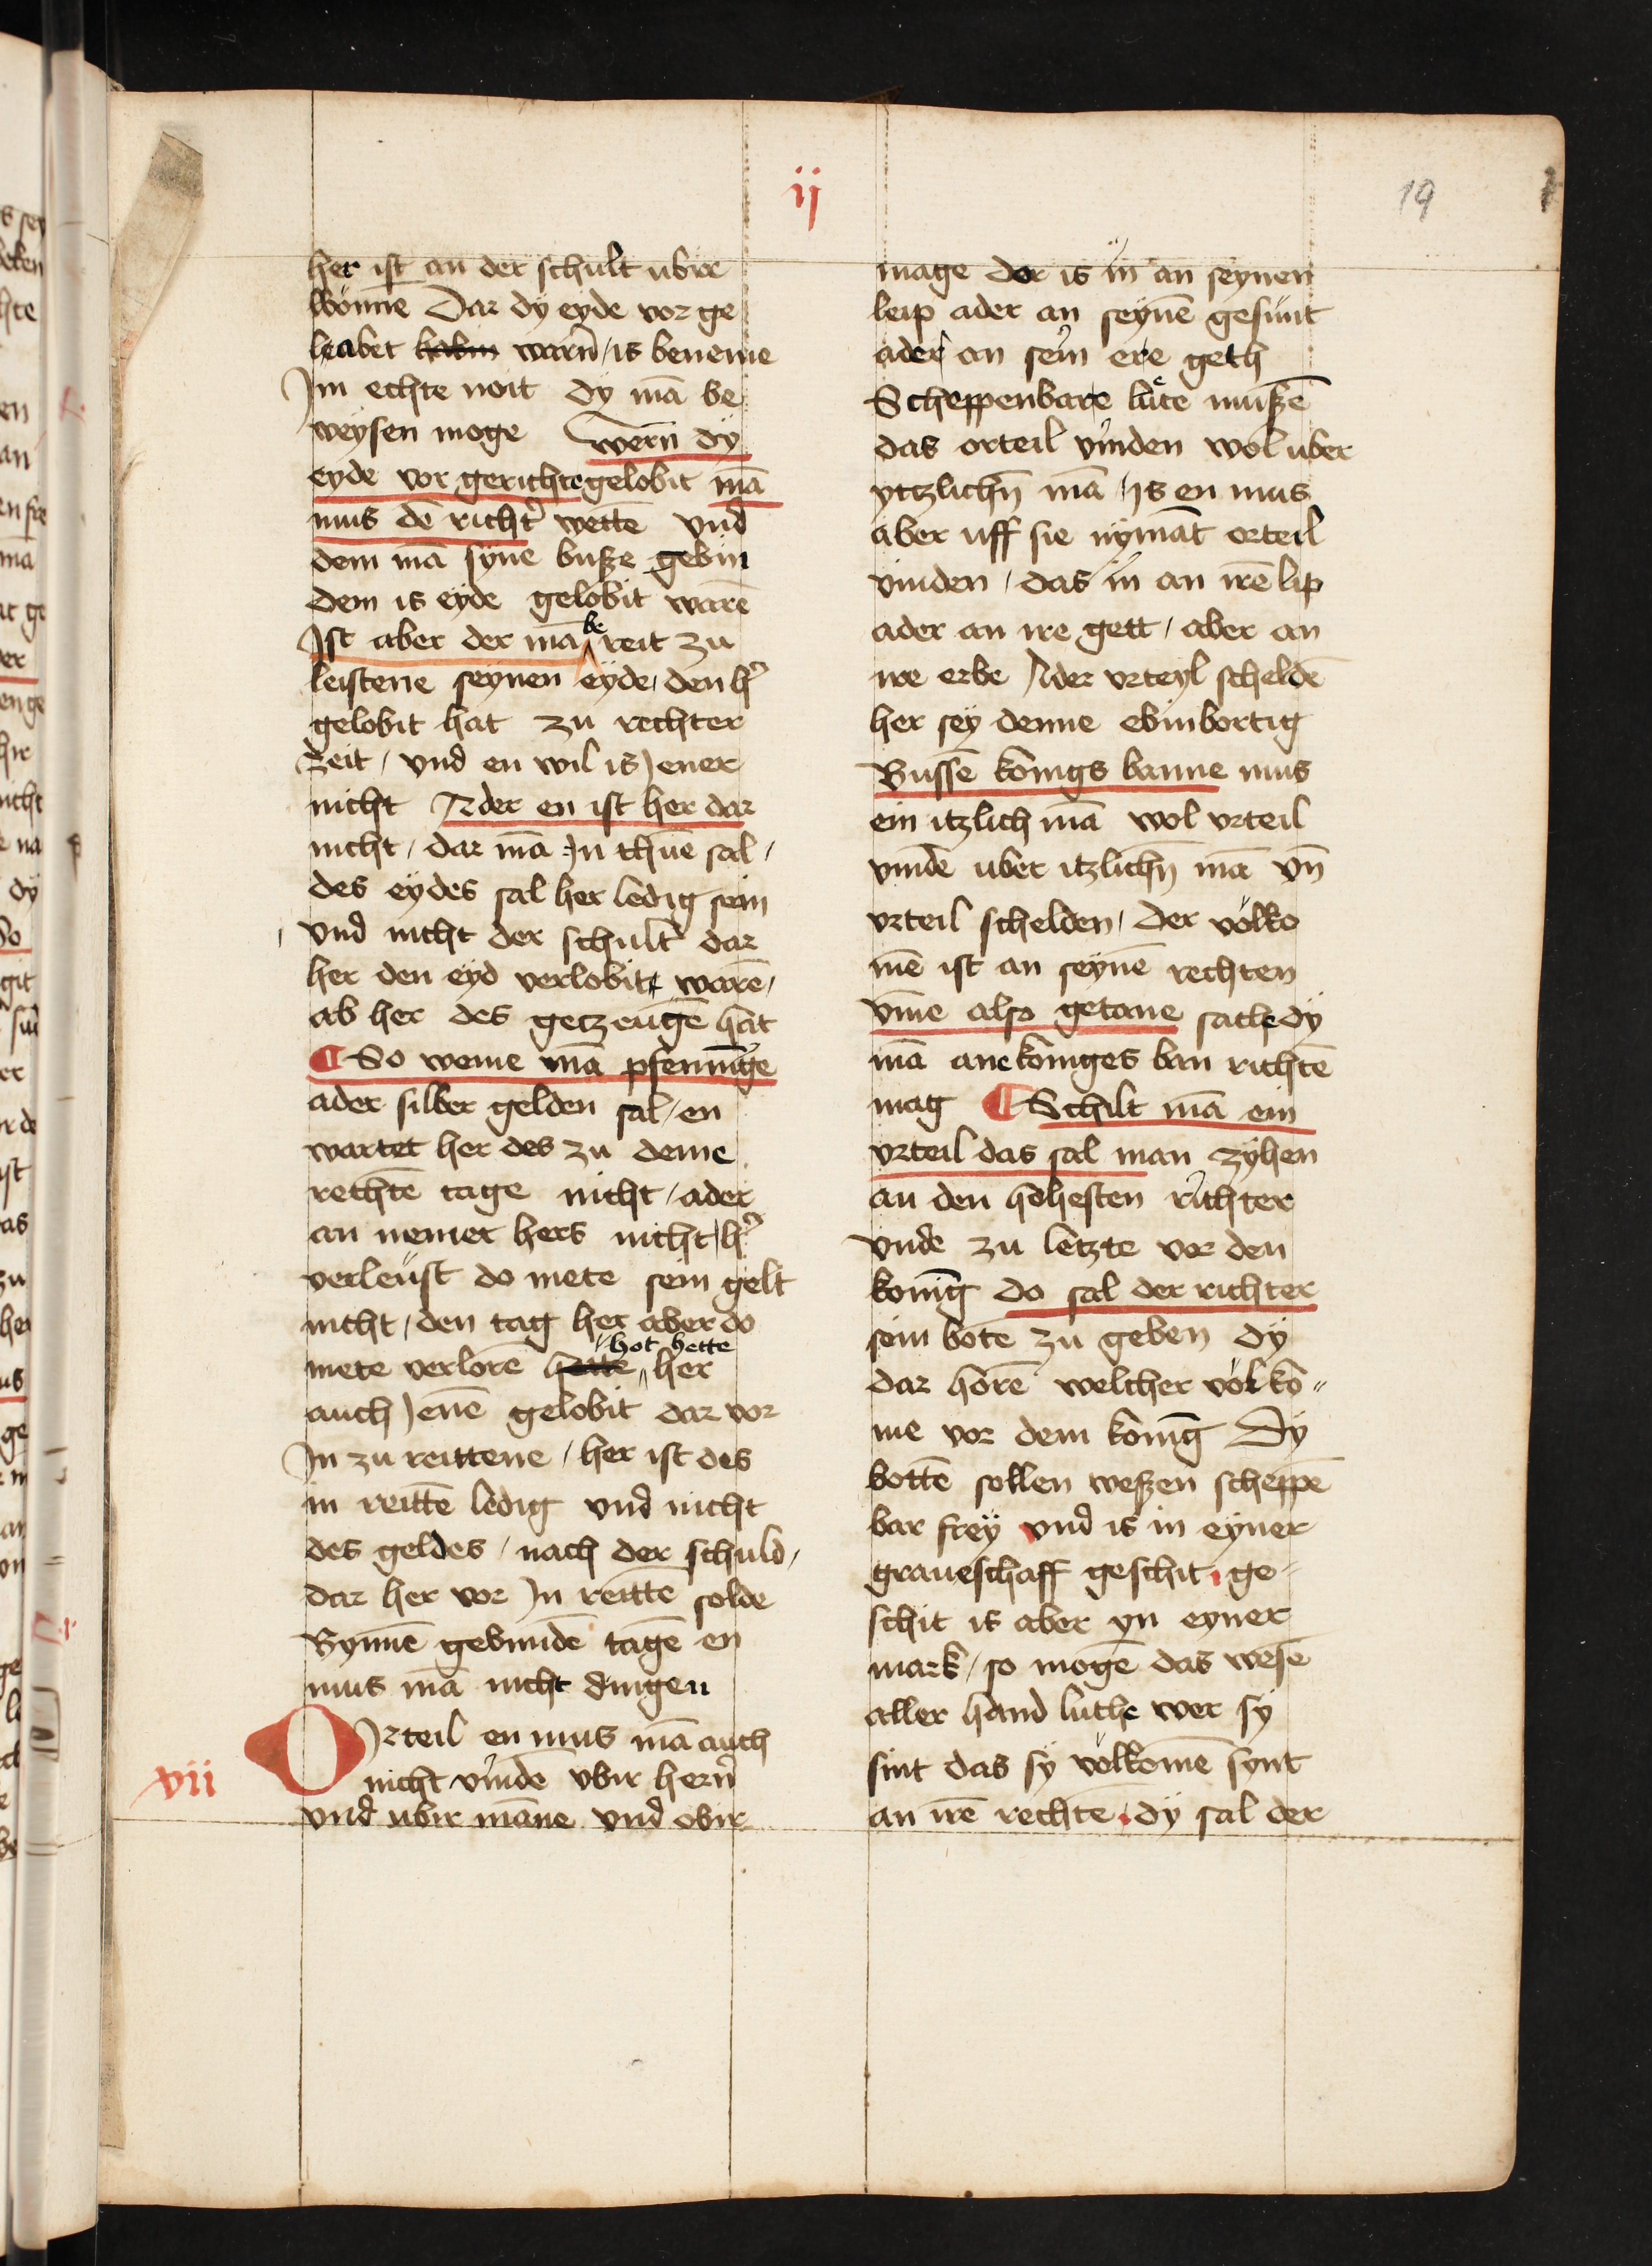 ii
19
her ist an der schult ubir
wunne Dar dy eyde vor ge
leabet habin warn̄ / is beneme
Jm echte noit dy mā be
weysen moge wern̄ dy
eyde vor gerichte gelobit mā
mus dē richt' wettē vnd
dem mā syne busze gebin
dem is eyde gelobit warē
Jst aber der mā be reit zu
leistene seynen eyde / den h'
gelobit hat zu rechter
zeit / vnd en wil is Jener
nicht Ader en ist her dar
nicht / dar mā Jn thuē sal /
des eydes sal her ledig sein
vnd nicht der schult dar
her den eyd verlobit warē /
ab her des getzeugē hat
¶ So weme mā pfennige
ader silber gelden sal / en
wartet her des zu deme
rechtē tage nicht / ader
an nemet hers nicht / h'
verleust do mete sein gelt
nicht / den tag her aber do
hot hette
mete verlorē hette her
auch Jenē gelobit dar vor
Jn zu reittene / her ist des
in reittē ledig vnd nicht
des geldes / nach der schuld /
dar her vor Jn reittē solde
Bynnē gebundē tagē en
mus mā nicht dingen
vii
ORteil en mus mā auch
nicht vindē vbir hern̄
vnd ubir māne vnd obir
mage der is in an seynen
leip ader an seynē gesunt
ader an sein ere geth
Scheppenbare lute muszē
das orteil vinden wol uber
ytzlichn̄ mā / Js en mus
aber uff sie nymāt orteil
vinden / das in an irē lip
ader an ire gett / aber an
ire erbe Ader vrteyl scheldē
her sey denne ebinbortig
Bussē konigs banne mus
ein itzlich mā wol vrteil
vindē uber itzlichn̄ mā vn̄
vrteil schelden / der volko
mē ist an seynē rechten
vmme also getane sache dy
mā ane koniges ban richtē
mag ¶ Schilt mā ein
vrteil das sal man zyhen
an den hohesten richter
vnde zu letzte vor den
konig do sal der richter
sein botē zu geben dy
dar horē welcher volko
me vor dem konig Dy
bottē sollen weszen scheppē
bar frey vnd is in eyner
graueschaff geschit . ge
schit is aber yn eyner
mark / so mogē das wesē
aller hand luthe wer sy
sint das sy volkomē synt
an irē rechte . dy sal der